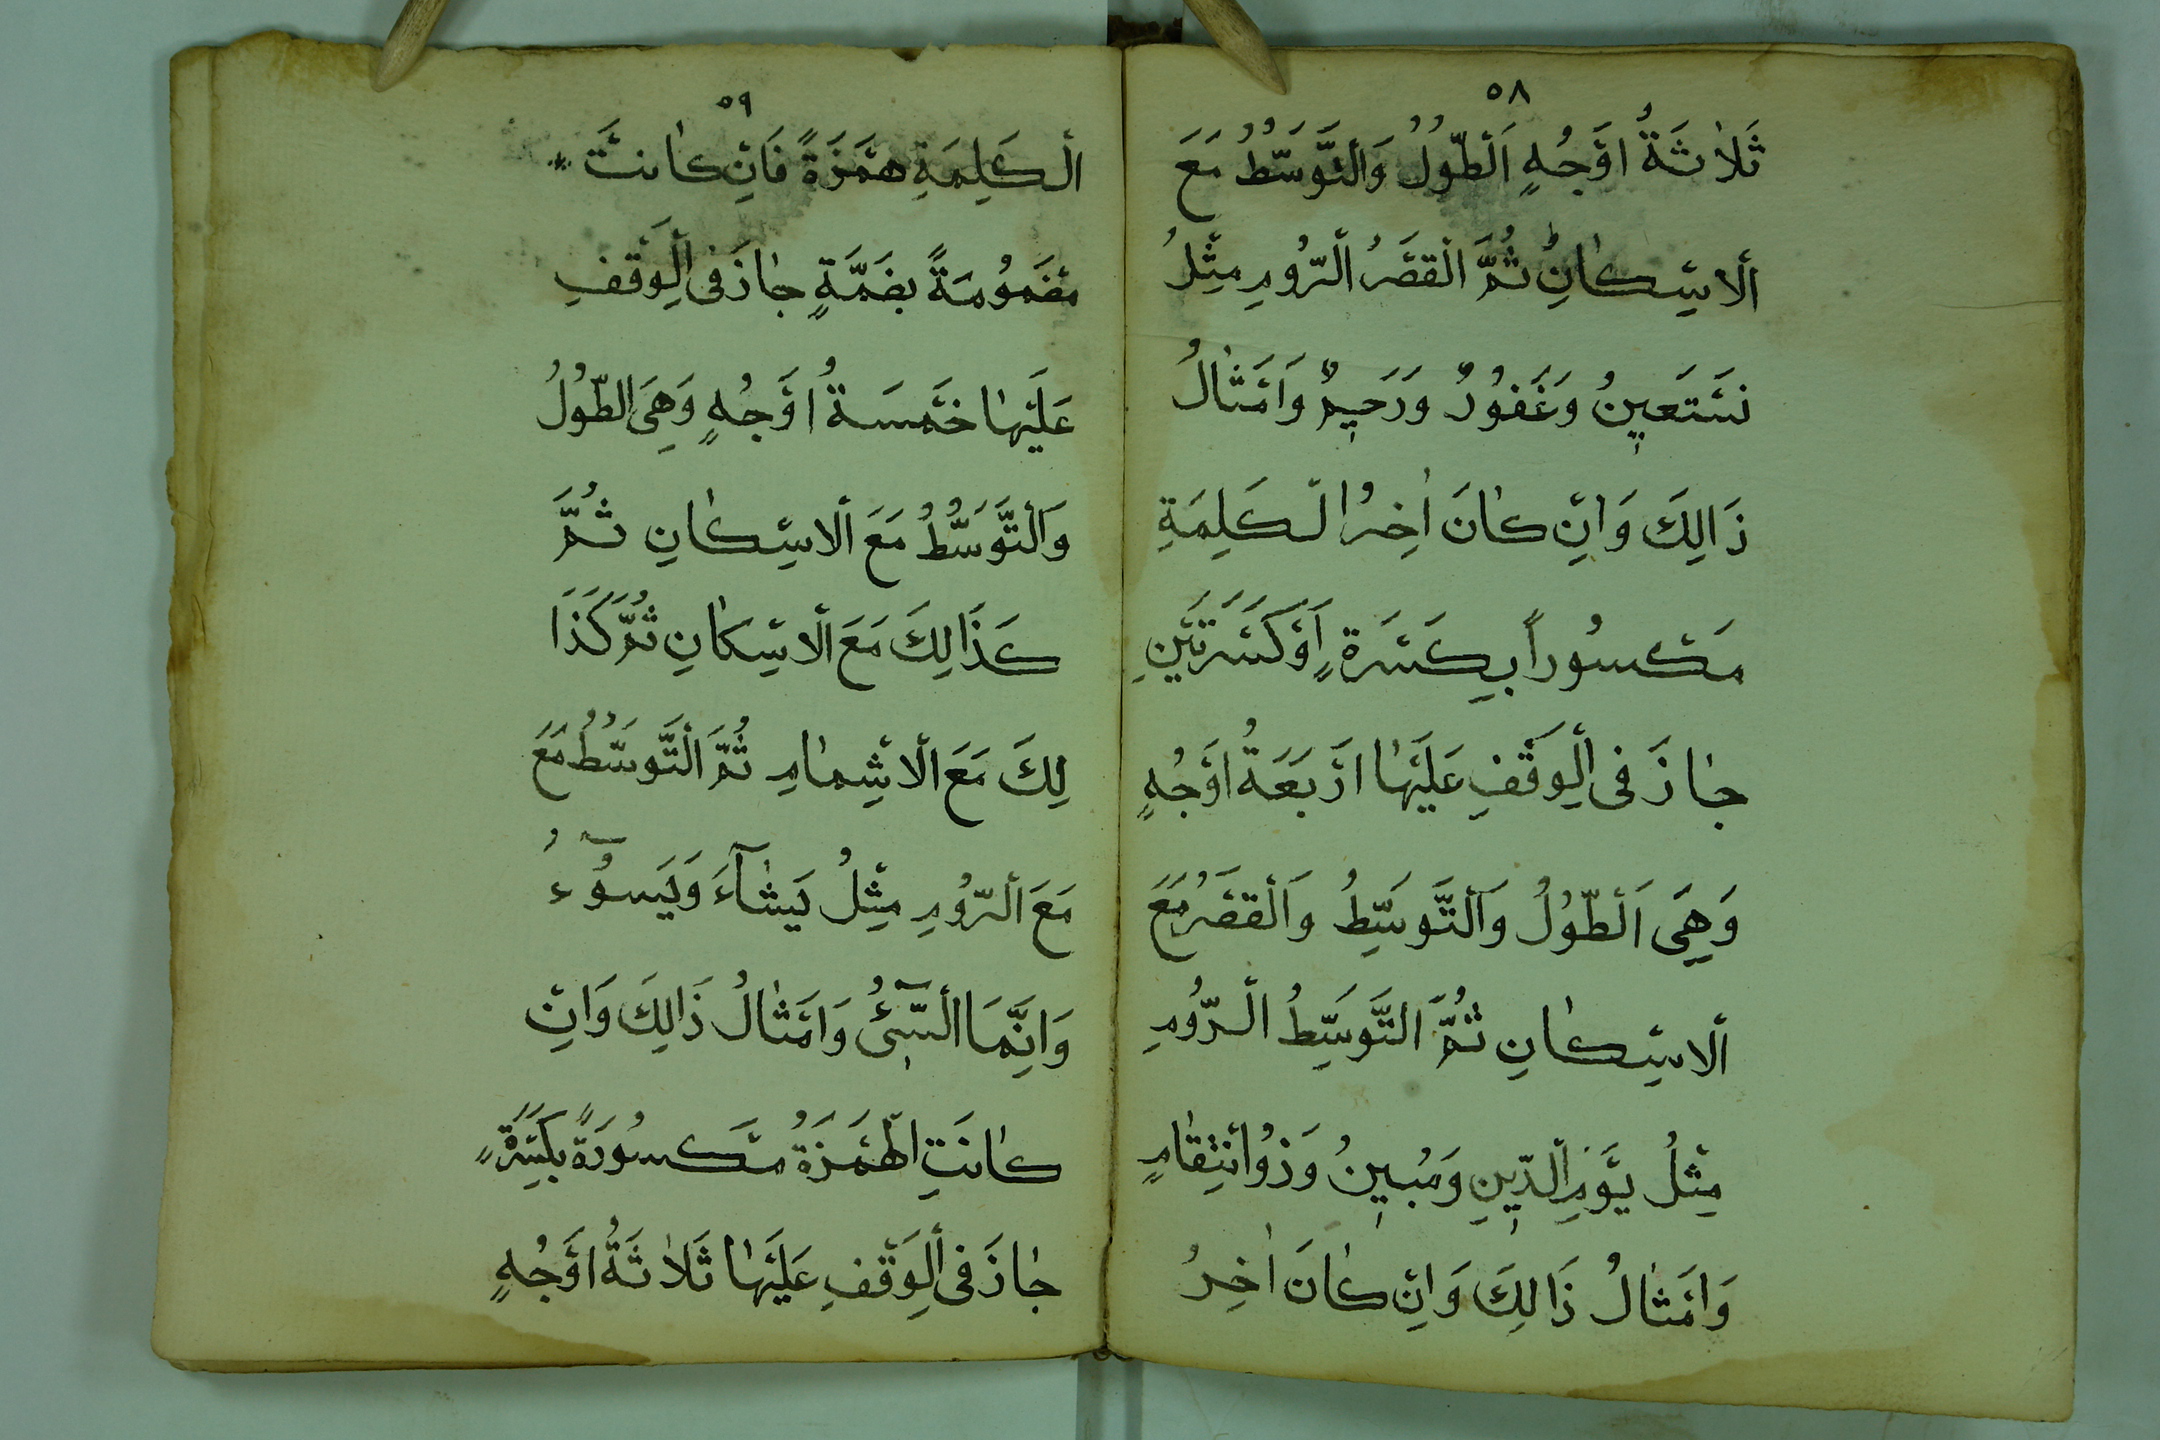 ٥٨
ثَلَاثَةُ اَوْجُهٍ اَلطُّولُ وَالتَّوَسُّطُ مَعَ
الْاِسْكَانِ ثُمَّ الْقَصْرُ الرُّومِ مِثْلُ
نَسْتَعِينُ وَغَفُورٌ وَرَحِيمٌ وَاَمْثَالُ
ذَالِكَ وَاِنْ كَانَ اٰخِرُ الْكَلِمَةِ
مَكْسُوراً بِكَسْرَةٍ اَوْكَسْرَتَيْنِ
جَازَ فِى الْوَقْفِ عَلَيْهَا اَرْبَعَةُ اَوْجُهٍ
وَهِىَ اَلطُّولُ وَالتَّوَسِّطُ وَالْقَصْرُ مَعَ
الْاِسْكَانِ ثُمَّ التَّوَسِّطُ الرُّومِ
مِثْلُ يَوْمِ الدِّينِ وَمُبِينُ وَذُوانْتِقَامٍ
وَاَمْثَالُ ذَالِكَ وَاِنْ كَانَ اٰخِرُ
٥٩
الْكَلِمَةِ هَمْزَةً فَاِنْ كَانَتْ
مَضْمُومَةً بِضَمَّةٍ جَازَ فِى الْوَقْفِ
عَلَيْهَا خَمْسَةُ اَوْجُهٍ وَهِىَ الطُّولُ
وَالتَّوَسُّطُ مَعَ الْاِسْكَانِ ثُمَّ
كَذَالِكَ مَعَ الْاِسْكَانِ ثُمَّ كَذَا
لِكَ مَعَ الْاِشِمَامِ ثُمَّ التَّوَسُّطُ مَعَ
مَعَ الرُّومِ مِثْلُ يَشَآءَ وَيَسُوٓءُ
وَاِنَّمَا السِّىٓئُ وَاَمْثَالُ ذَالِكَ وَاِنْ
كَانَتِ الْهَمْزَةُ مَكْسُورَةً بِكَسْرَةٍ
جَازَ فِى الْوَقْفِ عَلَيْهَا ثَلَاثَةُ اَوْجُهٍ